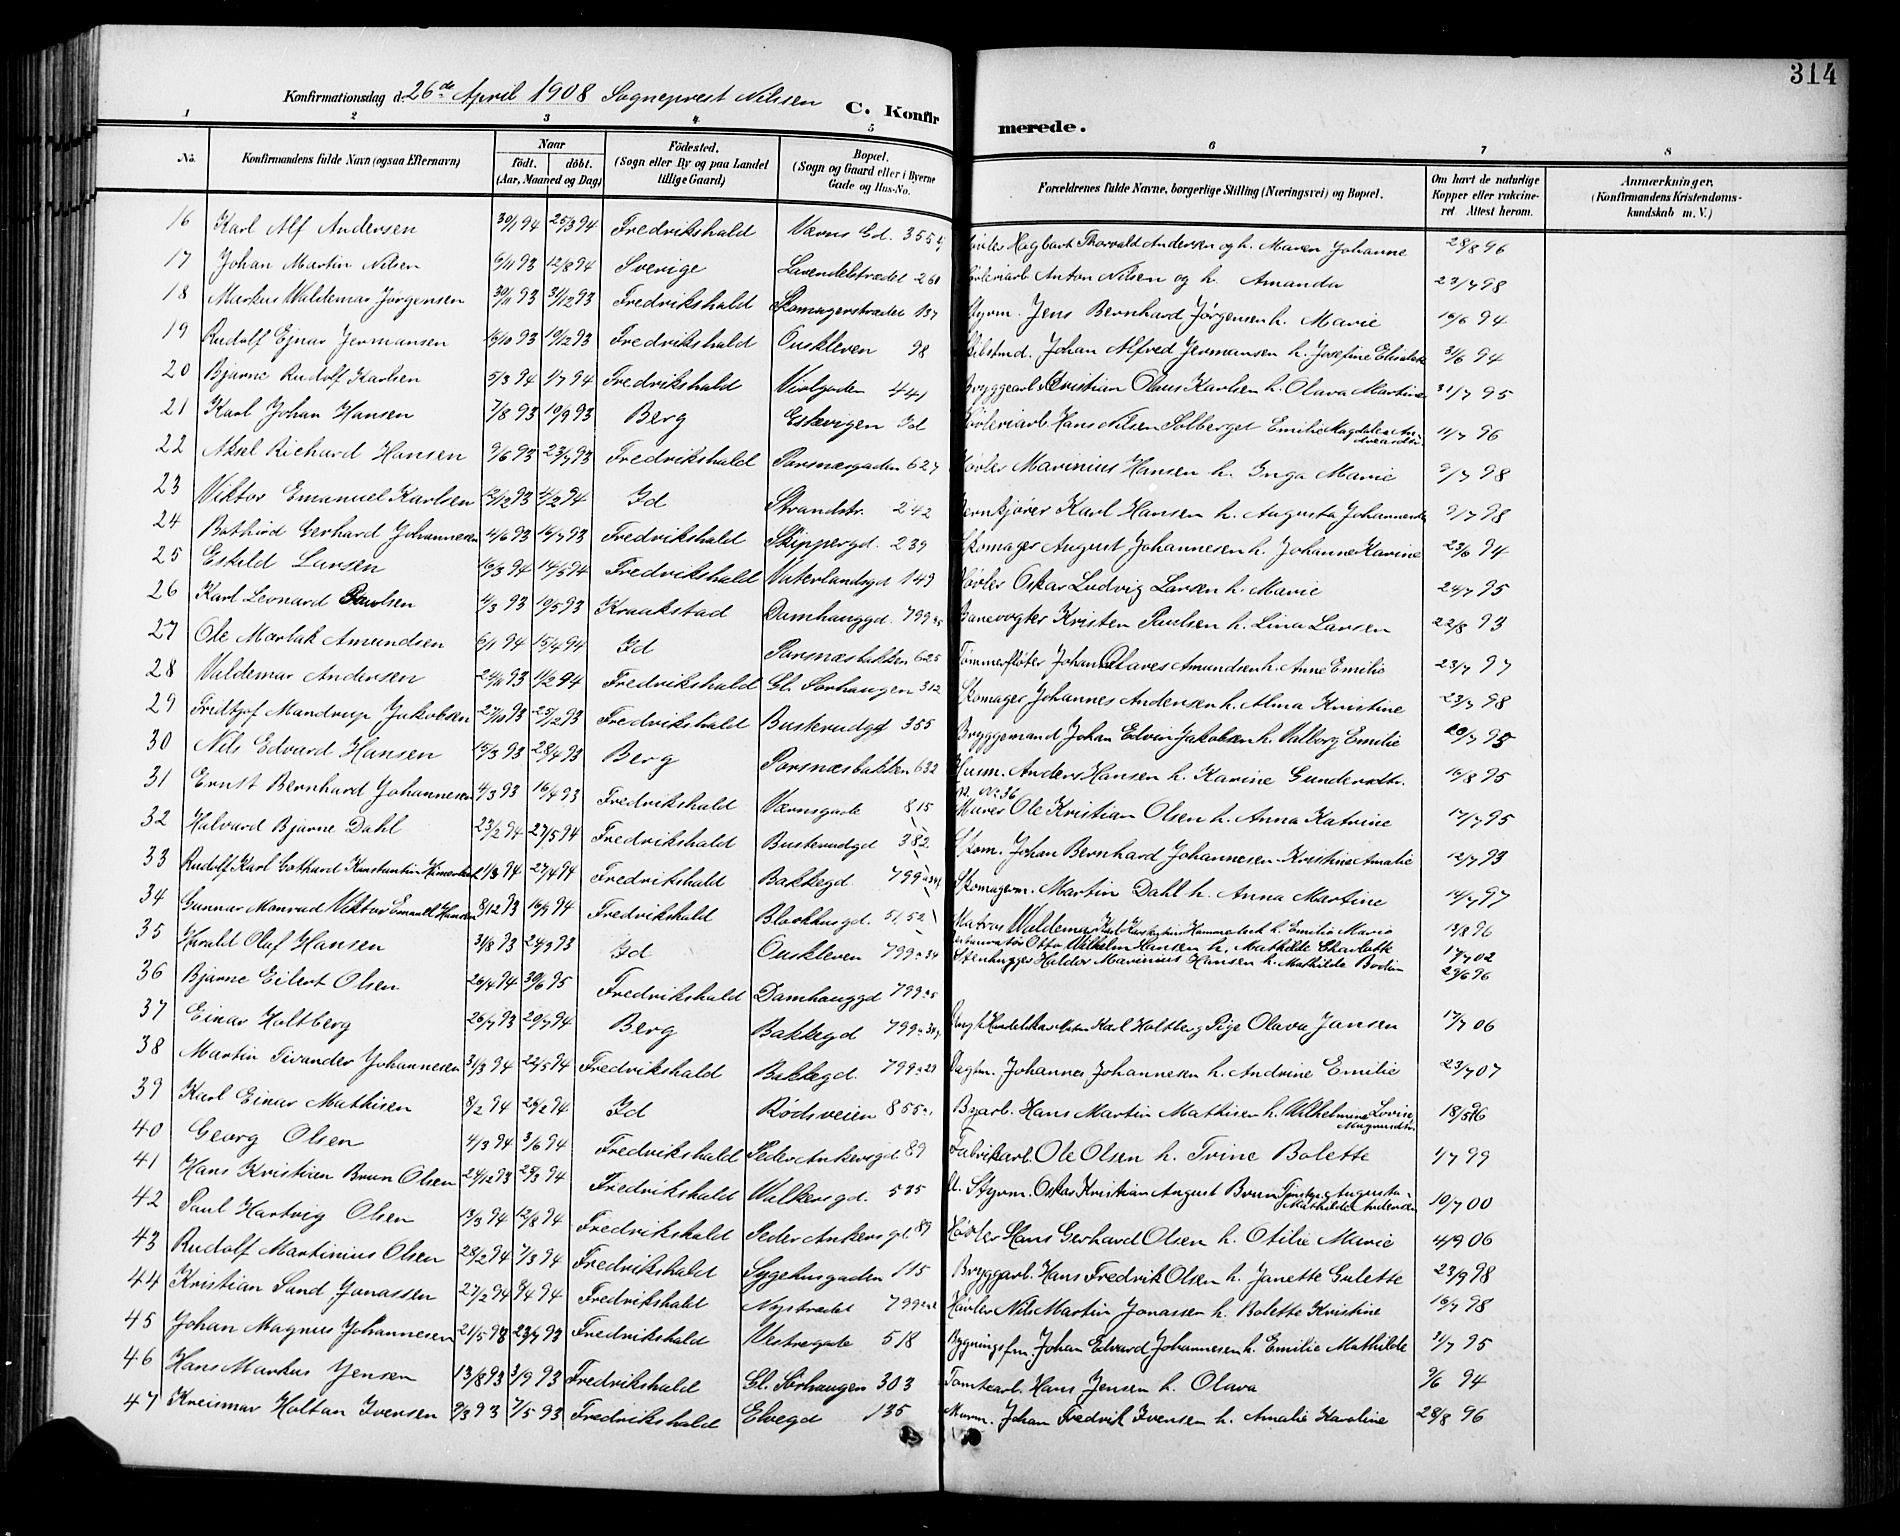 314
Konfirmationsdag d. 26de April 1908 Sogneprest Nilsen C. Konfirmerede.
1 2 3 4 5 6 7 8
No. Konfirmandens fulde Navn (ogsaa Efternavn) Naar født. døbt. (Aar, Maaned og Dag) Fødested. (Sogn eller By og paa Landet tillige Gaard) Bopæl. (Sogn og Gaard eller i Byerne Gade og Hus-No. Forældrenes fulde Navne, borgerlige Stilling (Næringsvei) og Bopæl. Om havt de naturlige Kopper eller vakcineret. Attest herom. Anmærkninger. (Konfirmandens Kristendomskundskab m. V.)
16 Karl Alf Andersen 30/1 94 25/3 94 Fredrikshald Værns Gd. 355 Høvler Hagbart Thorvald Andersen og h. Maren Johanne 28/8 96
17 Johan Martin Nilsen 6/11 93 12/8 94 Sverige Lavendelstrædet 260 Høvleriarb Anton Nilsen og h. Amanda 23/7 98
18 Markus Waldemar Jørgensen 30/11 93 31/12 93 Fredrikshald Skomagerstrædet 137 Styrm. Jens Bernhard Jørgensen h. Marie 16/6 94
19 Rudolf Ejnar Jermansen 15/10 93 19/12 93 Fredrikshald Ouskleven 98 Johan Alfred Jermansen h. Josefine 21/6 94
20 Bjarne Rudolf Karlsen 5/3 94 1/7 94 Fredrikshald Violgaden 441 Bryggearb Kristian Olaus Karlsen h. Olava Martine 31/7 95
21 Karl Johan Hansen 7/8 93 10/9 93 Berg Eskevigen Id Høvleriarb Hans Nilsen Solberget Emilie Magdalea Andreasdtr. 11/7 96
22 Aksel Richard Hansen 9/6 93 23/7 93 Fredrikshald Porsnæsgaden 627 Høvler Marinius Hansen h. Inga Marie 9/7 98
23 Viktor Emanuel Karlsen 12/12 93 11/2 94 Id Strandstr. 242 Karl Hansen h. Augusta Johannesen 9/7 98
24 Gerhard Johannesen 11/6 93 16/7 93 Fredrikshald Skippergd. 239 Skomager August Johannesen h. Johanne Karine 23/6 94
25 Eskild Larsen 16/3 94 14/5 94 Fredrikshald Vaterlandsgd 149 Høvler Oskar Ludvig Larsen h. Marie 24/7 95
26 Karl Leonard Paulsen 4/3 93 19/5 93 Kraakstad Damhauggd. 799 Banevogter Kristen Paulsen h. Lina Larsen 22/8 93
27 Ole Amundsen 6/1 94 15/4 94 Id Porsnæsbakken 625 Tømmerfløter Johan Olaves Amundsen h. Anne Emilie 23/7 97
28 Valdemar Andersen 24/11 93 11/2 94 Fredrikshald Gl. Sørhaugen 312 Skomager Johannes Andersen h. Alma Kristine 23/7 98
29 Fridtjof Mandrup Jakobsen 27/10 93 25/12 93 Fredrikshald Busterudgd 355 Bryggemand Johan Edvin Jakobsen h. Valborg Emilie 20/7 95
30 Nils Edvard Hansen 15/3 93 28/4 93 Berg Porsnæsbakken 632 Husm. Anders Hansen h. Karine Gundersdtr. 16/8 95
31 Ernst Bernhard Johannesen 4/3 93 16/4 93 Fredrikshald Værnsgade 815 N. No 36 Murer Ole Kristian Olsen h. Anna Katrine 17/7 95
32 Halvard Bjarne Dahl 23/2 94 27/5 94 Fredrikshald Busterudgd 382 Skom. Johan Bernhard Johannesen Kristine Amalie 12/7 93
33 Rudolf Karl Gothard Konstantin 21/3 94 27/4 94 Fredrikshald Bakkegd. 799 Skomagerm. Martin Dahl h. Anna Martine 14/7 97
34 Gunnar Monrad Viktor Emanuel Hansen 8/12 93 16/3 94 Fredrikshald Blokkhusgd. 5152 Matros Waldemar Karl h. Emilie Marie 13/8 96
Otto Wilhelm Hansen h. Mathilde Charlotte 17/7 02
35 Harald Olaf Hansen 31/8 93 24/9 93 Id Ouskleven 799 a 34 Stenhugger Haldor Marinius Hansen h. Mathilde Bodine 29/6 96
36 Bjarne Eilert Olsen 26/4 94 30/6 95 Fredrikshald Damhauggd 799
37 Einar Holtberg 26/7 93 29/7 94 Berg Bakkegd 799 Karl Holtberg Pige Olava Jansen 17/7 06
38 Martin Tivander Johannesen 31/3 94 22/5 94 Fredrikshald Bakkegd. 799 a 29 Dagm. Johannes Johannesen h. Andrine Emilie 23/7 07
39 Karl Einar Mathisen 8/2 94 26/2 94 Id Rødsveien 855 Byarb. Hans Martin Mathisen h. Wilhelmine Lovise Magnusdtr. 18/5 96
40 Georg Olsen 4/3 94 3/6 94 Fredrikshald Peder Ankersgd 89 Fabrikarb. Ole Olsen h. Trine Bolette 4/7 99
41 Hans Kristian Brun Olsen 24/12 93 25/3 94 Fredrikshald Walkersgd. 535 U. Styrm. Oskar Kristian August Brun Augusta Mathilde Andersen 10/7 00
42 Paul Hartvig Olsen 13/3 94 12/8 94 Fredrikshald Peder Ankersgd. 89 Høvler Hans Gerhard Olsen h. Otilie Marie 4/9 06
43 Rudolf Martinius Olsen 28/2 94 7/3 94 Fredrikshald Sygehusgaden 115 Bryggarb. Hans Fredrik Olsen h. Janette Gulette 23/9 98
44 Kristian Sand Jonassen 27/2 94 8/4 94 Fredrikshald Nystrædet 799 Høvler Nils Martin Jonassen h. Bolette Kristine 16/7 98
45 Johan Magnus Johannesen 21/5 93 23/7 93 Fredrikshald Vestregade 518 Bygningsfm. Johan Edvard Johannesen h. Emilie Mathilde 31/7 95
46 Hans Markus Jensen 13/8 93 3/9 93 Fredrikshald Gl. Sørhaugen 303 Tomtearb. Hans Jensen h. Olava 9/6 94
47 Kreismar Holtan Ivensen 9/3 93 7/5 93 Fredrikshald Elvegd 135 Murm. Johan Fredrik Ivensen h. Amalie Karoline 28/8 96